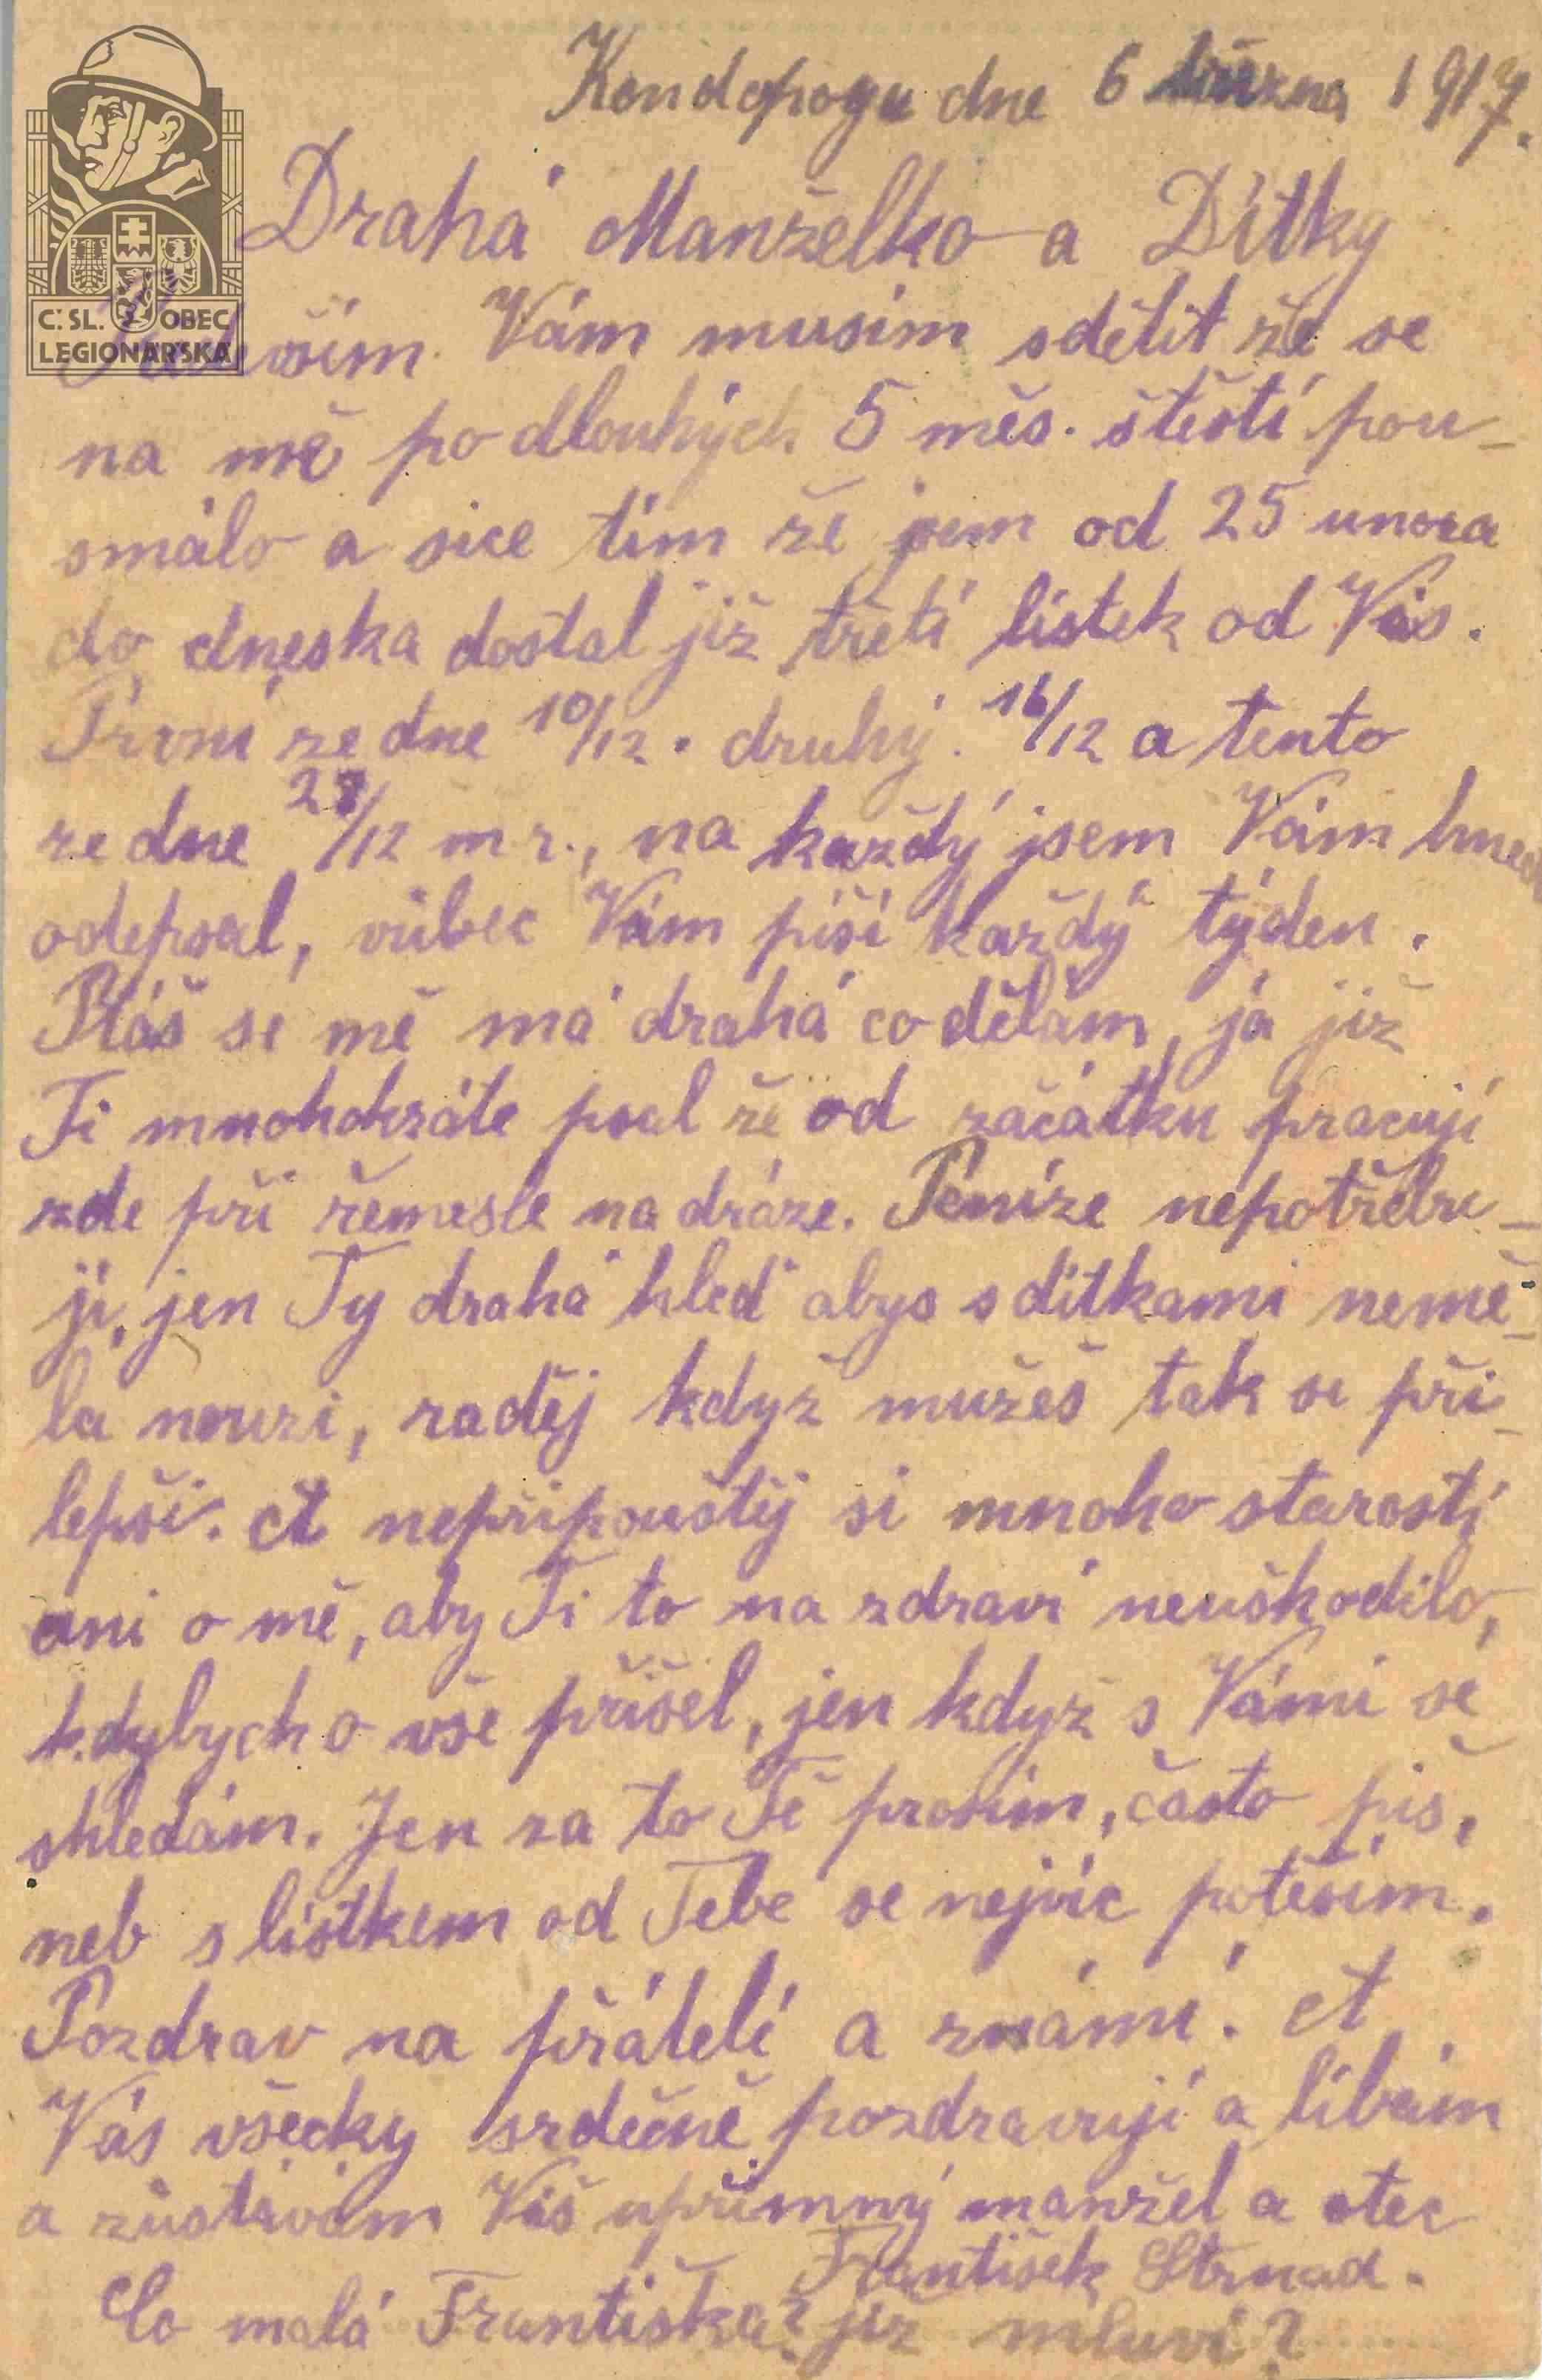 Kondopoga dne 6 března 1917.
Drahá Manželko a Dítky
C.SL. OBEC
LEGIONÁŘSKÁ
Vám musím sdělit že se
na mě po dlouhých 5 měs. štěstí pou-
smálo a sice tím že jsem od 25 unora
do dneska dostal již třetí lístek od Vás.
První ze dne 10/12. druhý. 16/12 a tento
ze dne 27/12 m r., na každý jsem Vám hned
odepsal, vůbec Vám píši každý týden.
Ptáš se mě má drahá co dělám, já již
Ti mnohokráte psal že od začátku pracuji
zde při řemesle na dráze. Peníze nepotřebu-
ji, jen Ty drahá hleď abys s dítkami nemě-
la nouzi, raděj když mužeš tak si při-
lepši. A nepřipouštěj si mnoho starostí
ani o mě, aby Ti to na zdraví neuškodilo,
kdybych o vše přišel, jen když s Vámi se
shledám. Jen za to Tě prosím, často piš,
neb s lístkem od Tebe se nejvíc potěším.
Pozdrav na přátelé a známé. A
Vás všecky srdečně pozdravuji a líbám
a zůstávám Váš upřímný manžel a otec
František Strnad.
Co malá Františka? již mluví?